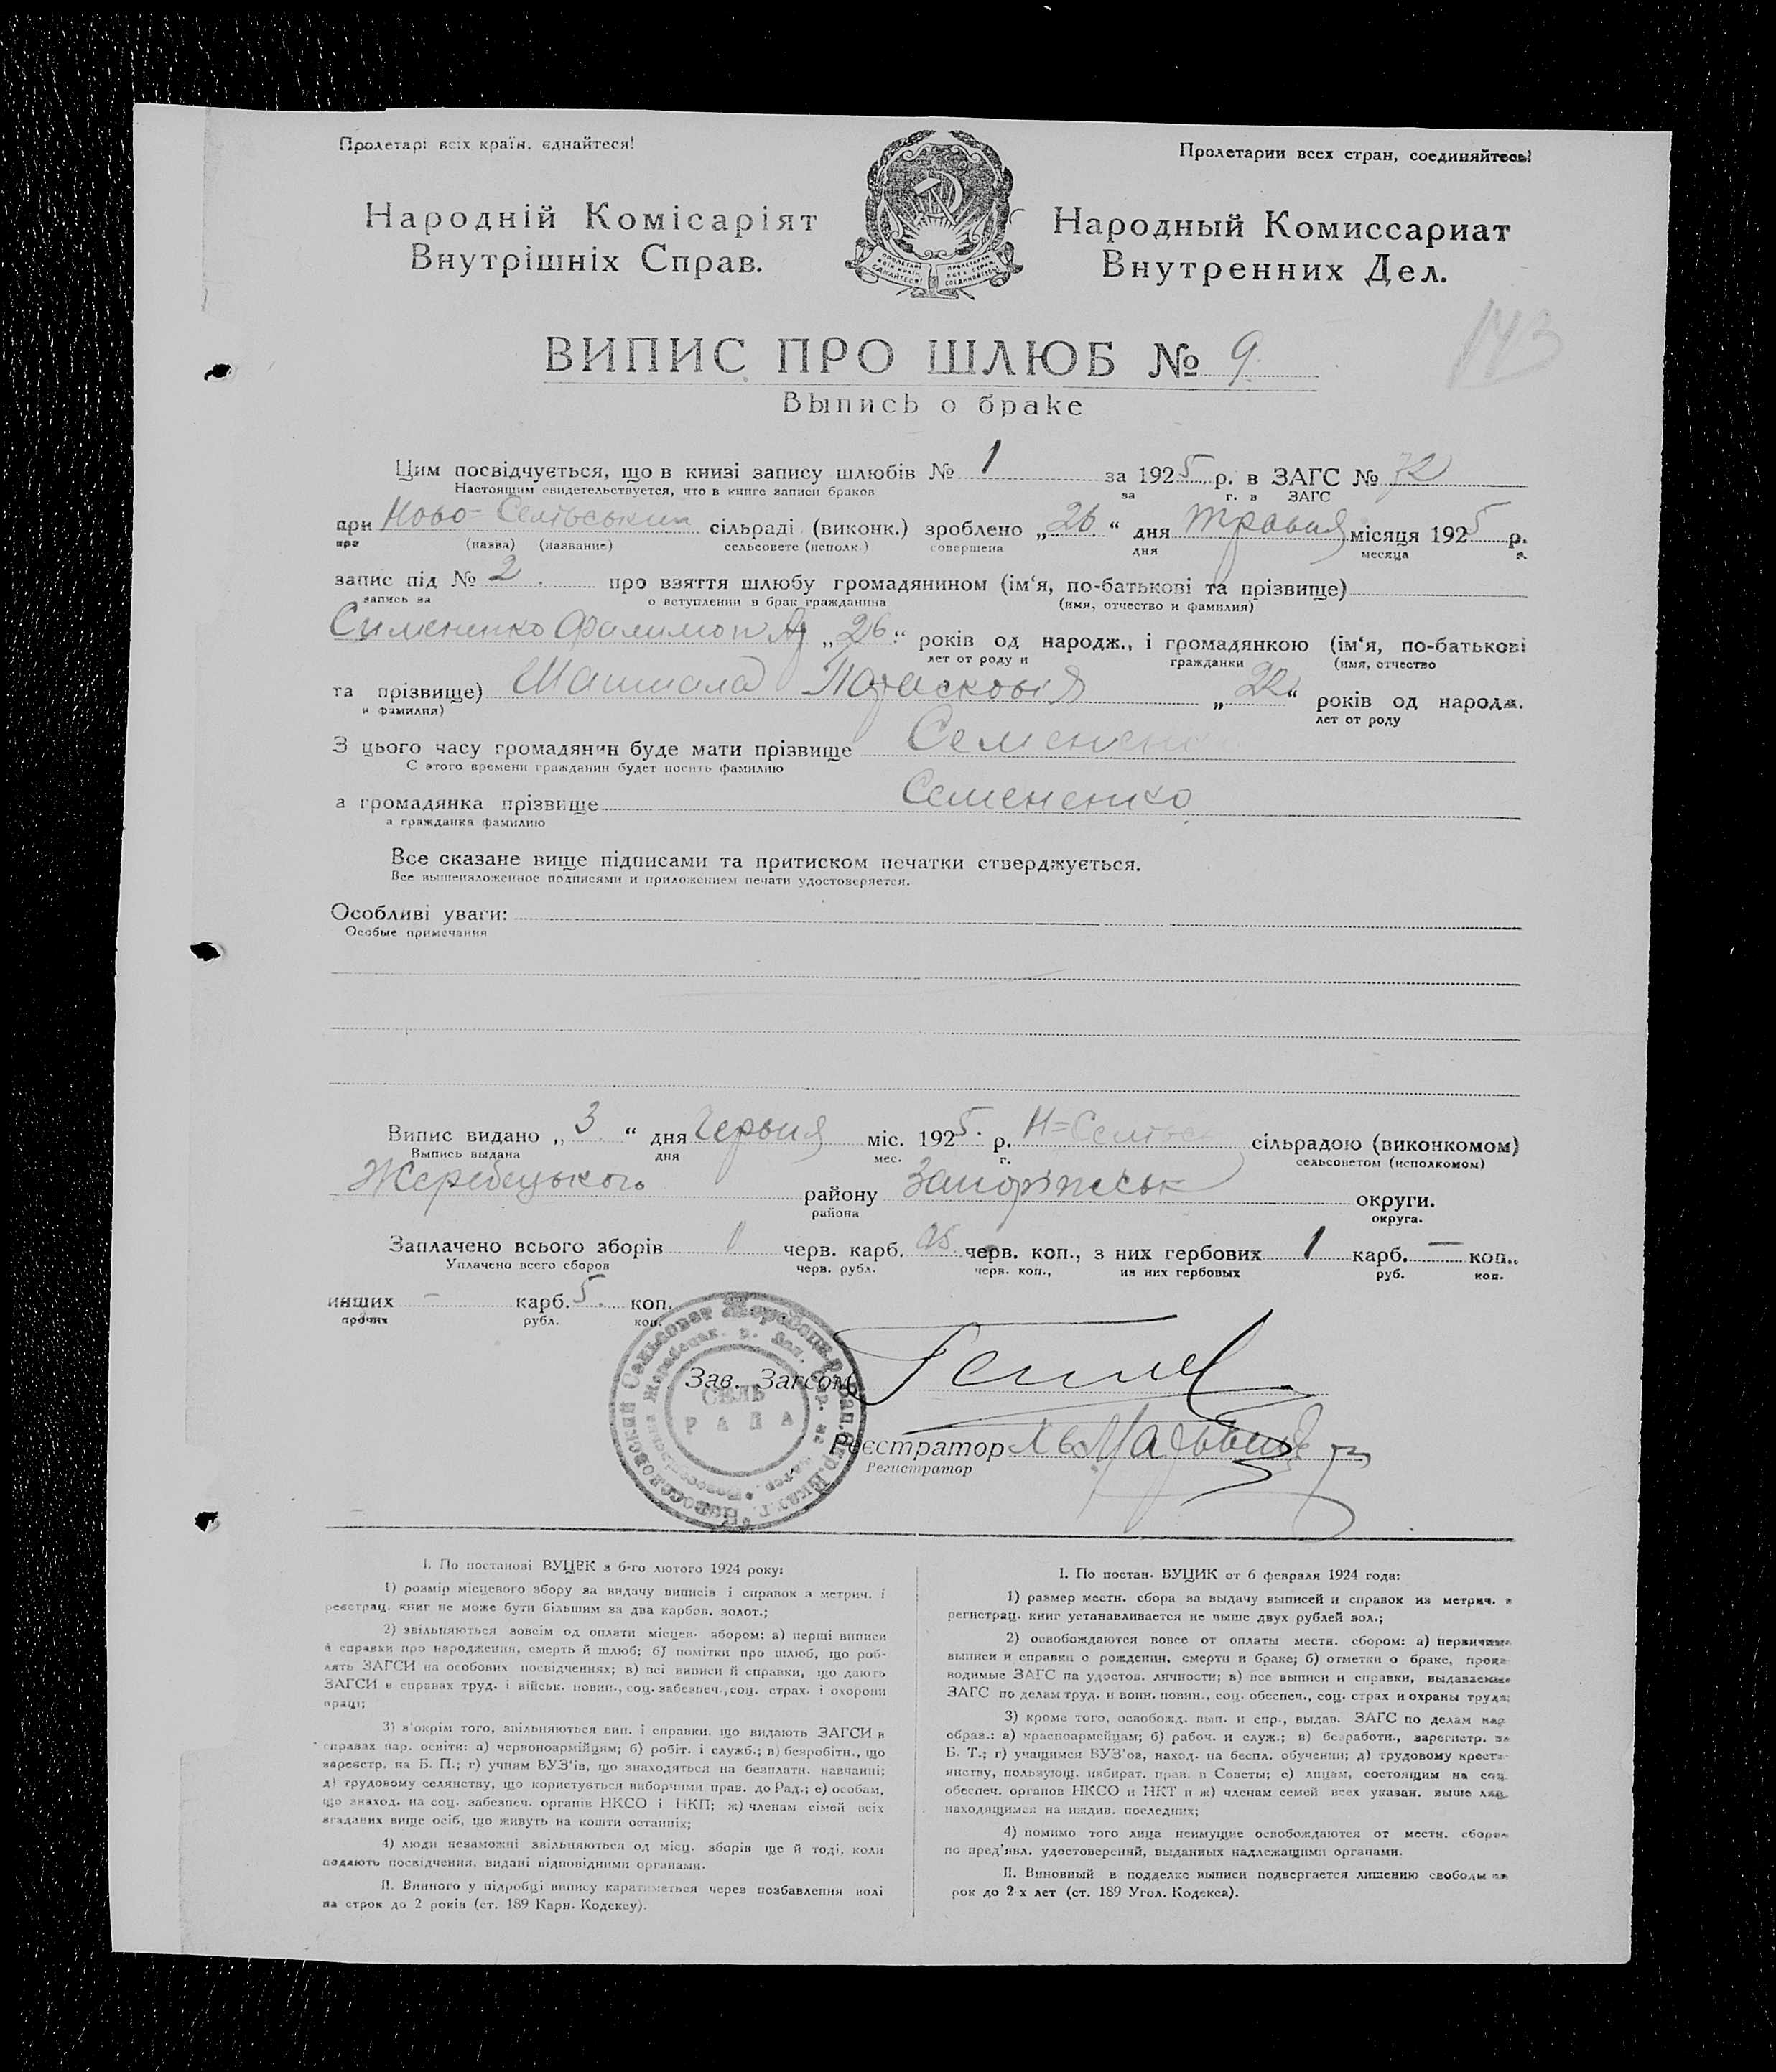 Пролетарі всіх країн, єднайтеся!
Пролетарии всех стран, соединяйтесь!
Народній Комісаріят
Внутрішніх Справ.
Народный Комиссариат
Внутренних Дел.
143
ВИПИС ПРО ШЛЮБ № 9
Выпись о браке
Цим посвідчується, що в книзі запису шлюбів № 1 за 1925 р. в ЗАГС № 72
Настоящим свидетельствуется, что в книге записи браков за г. в ЗАГС
при Ново-Селівський сільраді (виконк.) зроблено „26“ дня травня місяця 1925 р.
при (назва) (название) сельсовете (исполк.) совершена дня месяца г.
запис під № 2. про взяття шлюбу громадянином (ім‘я, по-батькові та прізвище)
запись за о вступлении в брак гражданина (имя, отчество и фамилия)
Симененко Филимон „26“ років од народж., і громадянкою (ім‘я, по-батькові
лет от роду и гражданки (имя, отчество
та прізвище) Парасковія „22“ років од народж.
и фамилия) лет от роду
З цього часу громадянин буде мати прізвище Семененко
С этого времени гражданин будет носить фамилию
а громадянка прізвище Семененко
а гражданка фамилию
Все сказане вище підписами та притиском печатки стверджується.
Все вышеизложенное подписями и приложением печати удостоверяется.
Особливі уваги:
Особые примечания
Випис видано „3“ дня Червня міс. 1925. р. Н=Селівськ сільрадою (виконкомом)
Выпись выдана дня мес. г. сельсоветом (исполкомом)
Жеребецького району Запоріжськ округи.
района округа.
Заплачено всього зборів 1 черв. карб. 05 черв. коп., з них гербових 1 карб. — коп.,
Уплачено всего сборов черв. рубл. черв. коп., из них гербовых руб. коп.
инших — карб. 5. коп.
прочих рубл. коп.
СЕЛЬ
РАДА
Зав. Загсом
Реєстратор
Регистратор
I. По постанові ВУЦВК з 6-го лютого 1924 року:
1) розмір місцевого збору за видачу виписів і справок з метрич. і
реєстрац. книг не може бути більшим за два карбов. золот.;
2) звільняються зовсім од оплати місцев. збором: а) перші виписи
й справки про народження, смерть й шлюб; б) помітки про шлюб, що роб-
лять ЗАГСИ на особових посвідченнях; в) всі виписи й справки, що дають
ЗАГСИ в справах труд. і військ. повин., соц. забезпеч., соц. страх. і охорони
праці;
3) з‘окрім того, звільняються вип. і справки, що видають ЗАГСИ в
справах нар. освіти: а) червоноармійцям; б) робіт. і служб.; в) безробітн., що
зареєстр. на Б. П.; г) учням ВУЗ‘ів, що знаходяться на безплатн. навчанні;
д) трудовому селянству, що користується виборчими прав. до Рад.; е) особам,
що знаход. на соц. забезпеч. органів НКСО і НКП; ж) членам сімей всіх
згаданих вище осіб, що живуть на кошти останніх;
4) люди незаможні звільняються од місц. зборів ще й тоді, коли
подають посвідчення, видані відповідними органами.
II. Винного у підробці випису каратиметься через позбавлення волі
на строк до 2 років (ст. 189 Карн. Кодексу).
I. По постан. ВУЦИК от 6 февраля 1924 года:
1) размер местн. сбора за выдачу выписей и справок из метрич. и
регистрац. книг устанавливается не выше двух рублей зол.;
2) освобождаются вовсе от оплаты местн. сбором: а) первичные
выписи и справки о рождении, смерти и браке; б) отметки о браке, произ-
водимые ЗАГС на удостов. личности; в) все выписи и справки, выдаваемые
ЗАГС по делам труд. и воин. повин., соц. обеспеч., соц. страх и охраны труда;
3) кроме того, освобожд. вып. и спр., выдав. ЗАГС по делам нар.
образ.: а) красноармейцам; б) рабоч. и служ.; в) безработн., зарегистр. на
Б. Т.; г) учащимся ВУЗ‘ов, наход. на беспл. обучении; д) трудовому кресть-
янству, пользующ. избират. прав. в Советы; е) лицам, состоящим на соц.
обеспеч. органов НКСО и НКТ и ж) членам семей всех указан. выше лиц,
находящимся на иждив. последних;
4) помимо того лица неимущие освобождаются от местн. сборов
по пред‘явл. удостоверений, выданных надлежащими органами.
II. Виновный в подделке выписи подвергается лишению свободы на
рок до 2-х лет (ст. 189 Угол. Кодекса).